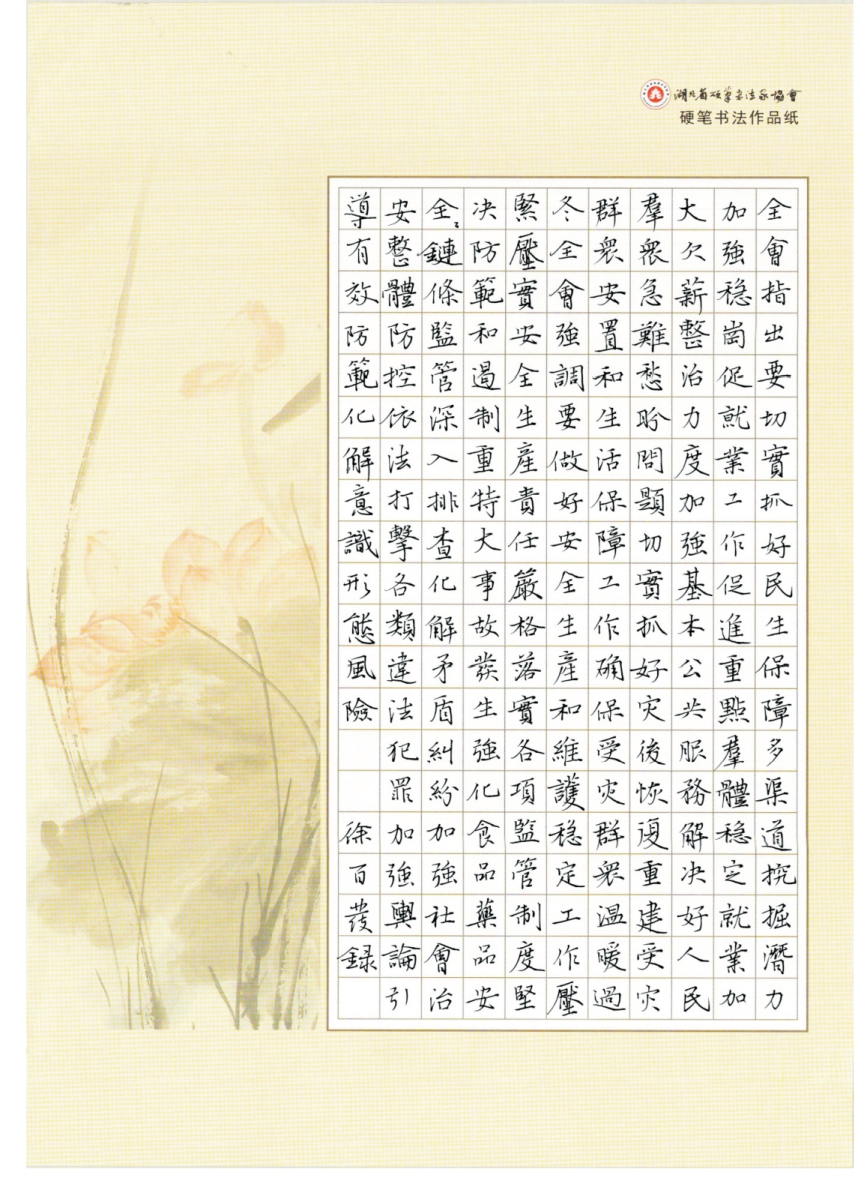 湖北省硬筆書法家協會
硬笔书法作品纸
全會指出要切實抓好民生保障多渠道挖掘潛力
加強穩崗促就業工作促進重點羣體穩定就業加
大欠薪整治力度加強基本公共服務解決好人民
羣衆急難愁盼問題切實抓好灾後恢復重建受灾
群衆安置和生活保障工作确保受灾群衆溫暖過
冬全會強調要做好安全生產和維護穩定工作壓
緊壓實安全生產責任嚴格落實各項監管制度堅
决防範和遏制重特大事故發生強化食品藥品安
全〻鏈條監管深入排查化解矛盾糾紛加強社會治
安整體防控依法打擊各類違法犯罪加強輿論引
導有效防範化解意識形態風險
徐百發錄